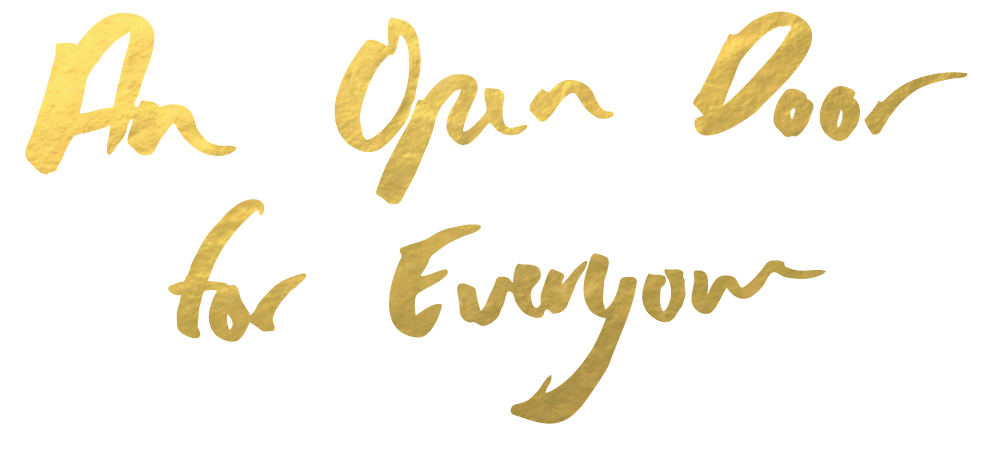 An Open Door
for Everyone